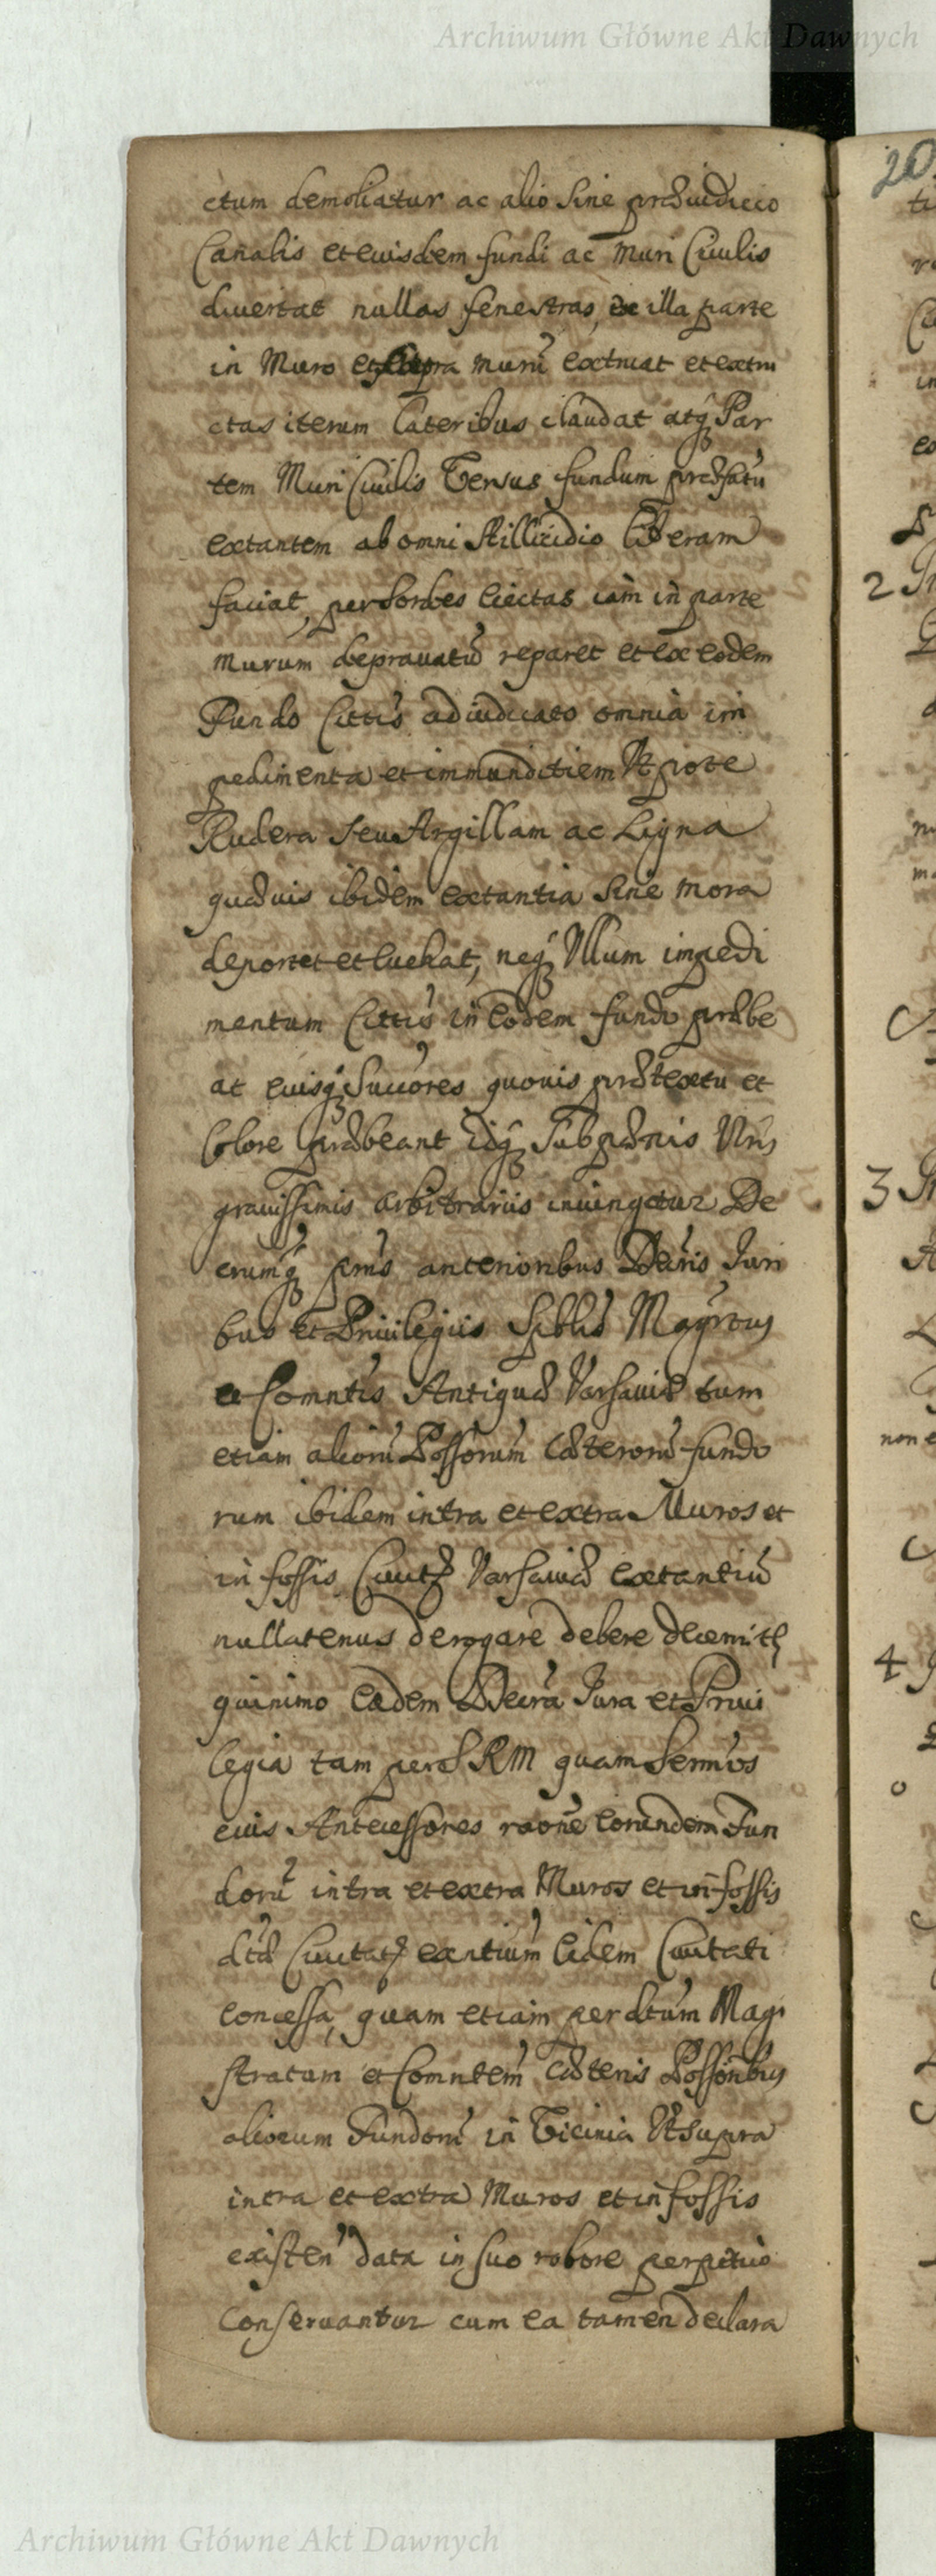 Archiwum Główne Akt Dawnych
ctum demoliatur ac alio sine præiudicio
Canalis et eiusdem fundi ac Muri Ciuilis
diuertat nullas fenestras, ex illa parte
in Muro et supra murũ extruat et extru
ctas iterum lateribus claudat atq̃ Par
tem Muri Ciuilis Versus fundum præfatũ
extantem ab omni stillicidio liberam
faciat, per sordes eiectas iam in parte
murum deprauatũ reparet et ex eodem
Fundo Cittis adiudicato omnia im
pedimenta et immunditiem Vtpote
Rudera seu Argillam ac Ligna
quæuis ibidem extantia sine mora
deportet et euehat, neq̃ Vllum impedi
mentum Cittis in eodem fundo præbe
at eiusq̃ Succores quouis prætextu et
Colore præbeant idq̃ sub pænis Nris
grauissimis arbitrariis iniungetur De
crumq̃ pms anterioribus Decris Juri
bus et Priuilegiis Spblis Magrtus
et Comntis Antiquæ Varsauiæ tum
etiam aliorũ Possorum cæterorũ fundo
rum ibidem intra et extra Muros et
in fossis Ciuitt Varsauiæ extantiũ
nullatenus derogare debere decernith
quinimo eadem Decra Jura et Priui
legia tam per S R M quam Sermos
eius Antecessores raõne eorundem Fun
dorũ intra et extra Muros et in fossis
dtæ Ciuitats exntium eidem Ciuitati
concessa, quam etiam per dtum Magi
stratum et Comntem cæteris Possoribus
aliorum Fundorũ in Vicinia Vtsupra
intra et extra Muros et in fossis
existen data in suo robore perpetuo
conseruantur cum ea tamen declara
20
2
3
4
Archiwum Główne Akt Dawnych